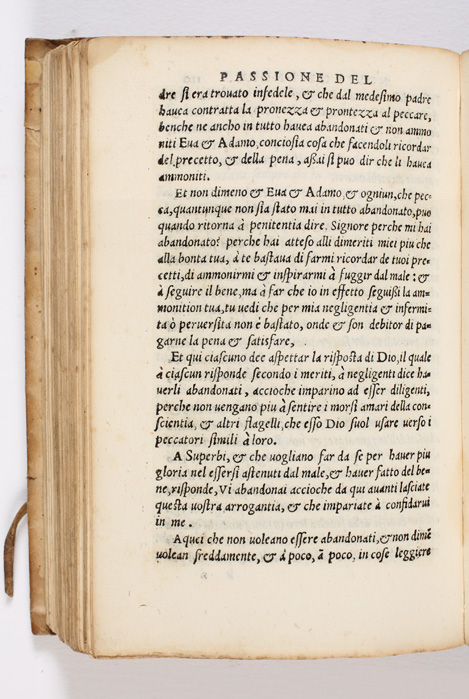 PASSIONE DEL
dre si era trouato infedele, & che dal medesimo padre
hauea contratta la pronezza & prontezza al peccare,
benche ne ancho in tutto hauea abandonati & non ammo
niti Eua & Adamo, conciosia cosa che facendoli ricordar
del precetto, & della pena, assai si puo dir che li hauea
ammoniti.
Et non dimeno & Eua & Adamo & ogniun, che pec-
ca, quantunque non sia stato mai in tutto abandonato, puo
quando ritorna à penitentia dire. Signore perche mi hai
abandonato? perche hai atteso alli dimeriti miei piu che
alla bonta tua, à te bastaua di farmi ricordar de tuoi pre-
cetti, di ammonirmi & inspirarmi à fuggir dal male: &
à seguire il bene, ma à far che io in effetto seguissi la am-
monition tua, tu uedi che per mia negligentia & infermi-
ta ò peruersita non è bastato, onde & son debitor di pa-
garne la pena & satisfare,
Et qui ciascuno dee aspettar la risposta di Dio, il quale
à ciascun risponde secondo i meriti, à negligenti dice ha-
uerli abandonati, accioche imparino ad esser diligenti,
perche non uengano piu à sentire i morsi amari della con-
scientia, & altri flagelli, che esso Dio suol usare uerso i
peccatori simili à loro.
A Superbi, & che uogliano far da se per hauer piu
gloria nel essersi astenuti dal male, & hauer fatto del be-
ne, risponde, Vi abandonai accioche da qui auanti lasciate
questa uostra arrogantia, & che impariate à confidarui
in me.
A quei che non uoleano essere abandonati, & non dimē
uolean freddamente, & à poco, à poco, in cose leggiere